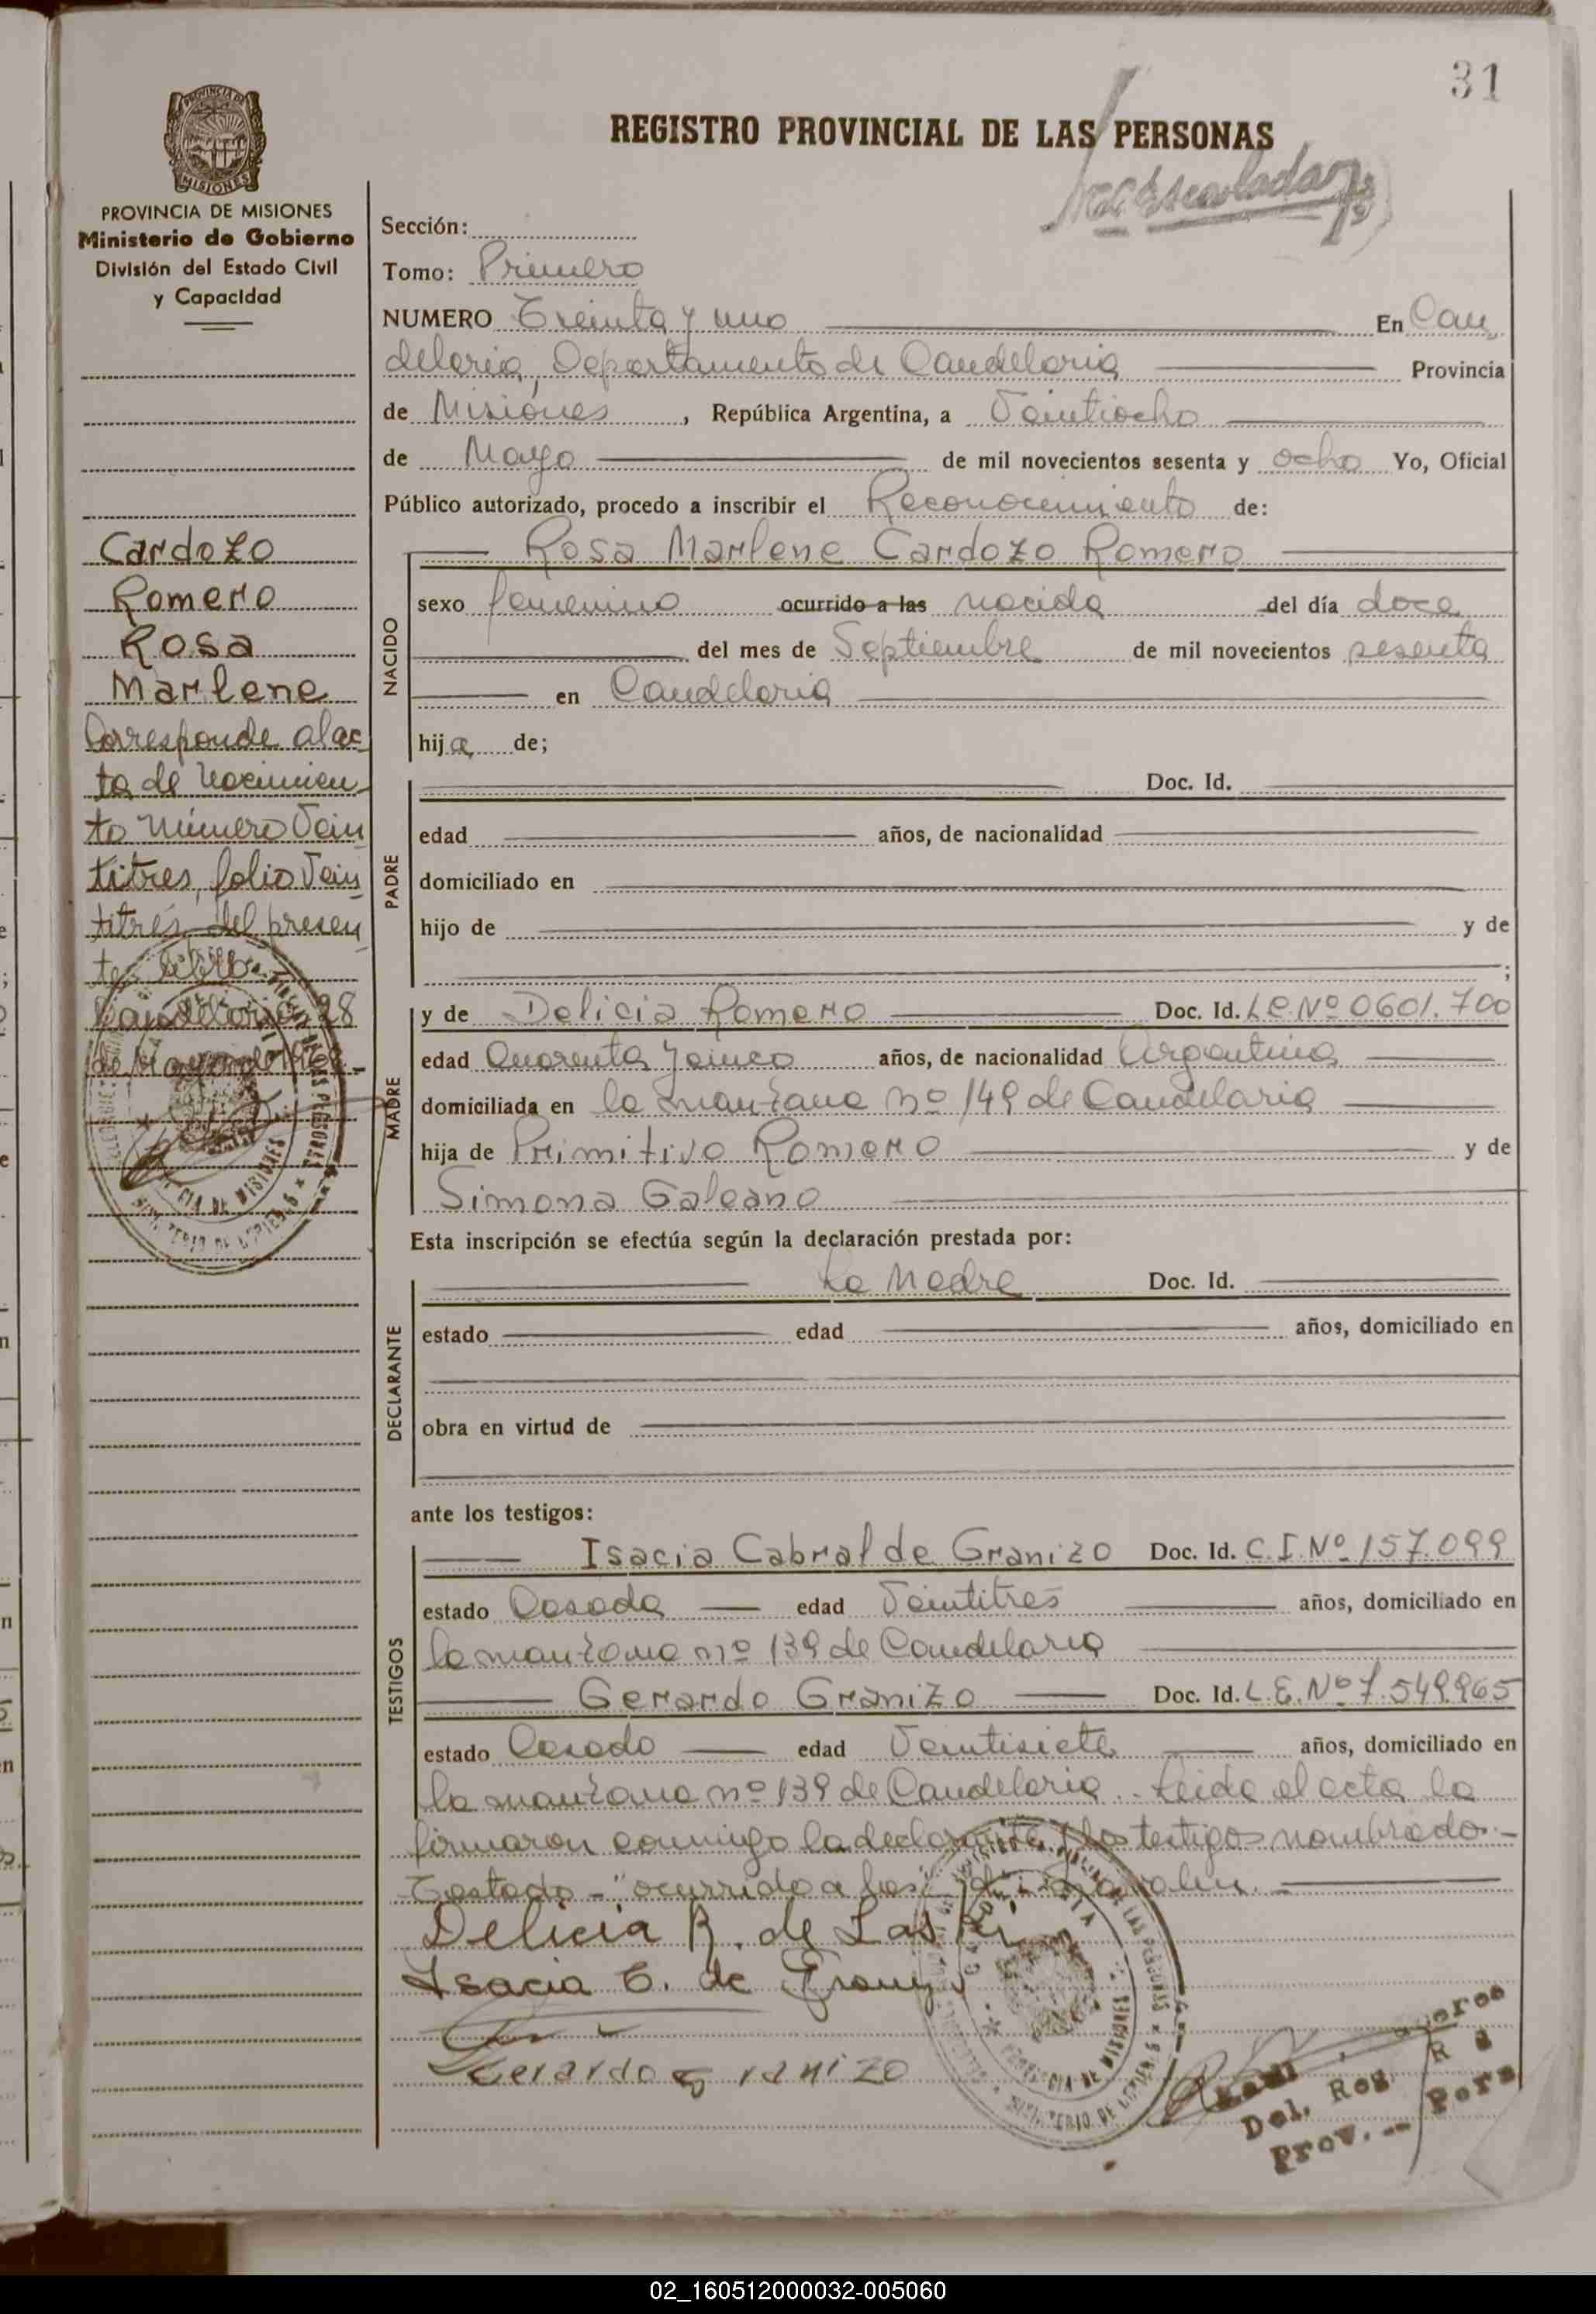 31
REGISTRO PROVINCIAL DE LAS PERSONAS
PROVINCIA DE
MISIONES
PROVINCIA DE MISIONES
Ministerio de Gobierno
División del Estado Civil
y Capacidad
Cardozo
Romero
Rosa
Marlene
Corresponde al ac
ta de Nacimien
to Número Vein
titres, folio Vein
titrés del presen
te libro.
Candelaria 28
de Mayo de 1968
Sección:
Tomo: Primero
NUMERO Treinta y uno En Can
delaria, Departamento de Candelaria Provincia
de Misiones, República Argentina, a Veintiocho
de Mayo de mil novecientos sesenta y ocho Yo, Oficial
Público autorizado, procedo a inscribir el Reconocimiento de:
Rosa Marlene Cardozo Romero
NACIDO
sexo femenino ocurrido a las nacida del día doce
del mes de Septiembre de mil novecientos sesenta
en Candelaria
hija de;
PADRE
Doc. Id.
edad años, de nacionalidad
domiciliado en
hijo de y de
;
MADRE
y de Delicia Romero Doc. Id. L.C. Nº 0601.700
edad Cuarenta y cinco años, de nacionalidad Argentina
domiciliada en la manzana nº 149 de Candelaria
hija de Primitivo Romero y de
Simona Galeano
Esta inscripción se efectúa según la declaración prestada por:
DECLARANTE
La Madre Doc. Id.
estado edad años, domiciliado en
obra en virtud de
ante los testigos:
TESTIGOS
Isacia Cabral de Granizo Doc. Id. C.I. Nº 157.099
estado Casada edad Veintitres años, domiciliado en
la manzana nº 139 de Candelaria
Gerardo Granizo Doc. Id. L.E. Nº 7.549.965
estado Casado edad Veintisiete años, domiciliado en
la manzana nº 139 de Candelaria. Leida el acta la
firmaron conmigo la declarante y los testigos nombrados.
Testado - "ocurrido a las"
Delicia R. de
Isacia C. de
Gerardo Granizo
Del. Reg.
Prov. Pers
02_160512000032-005060